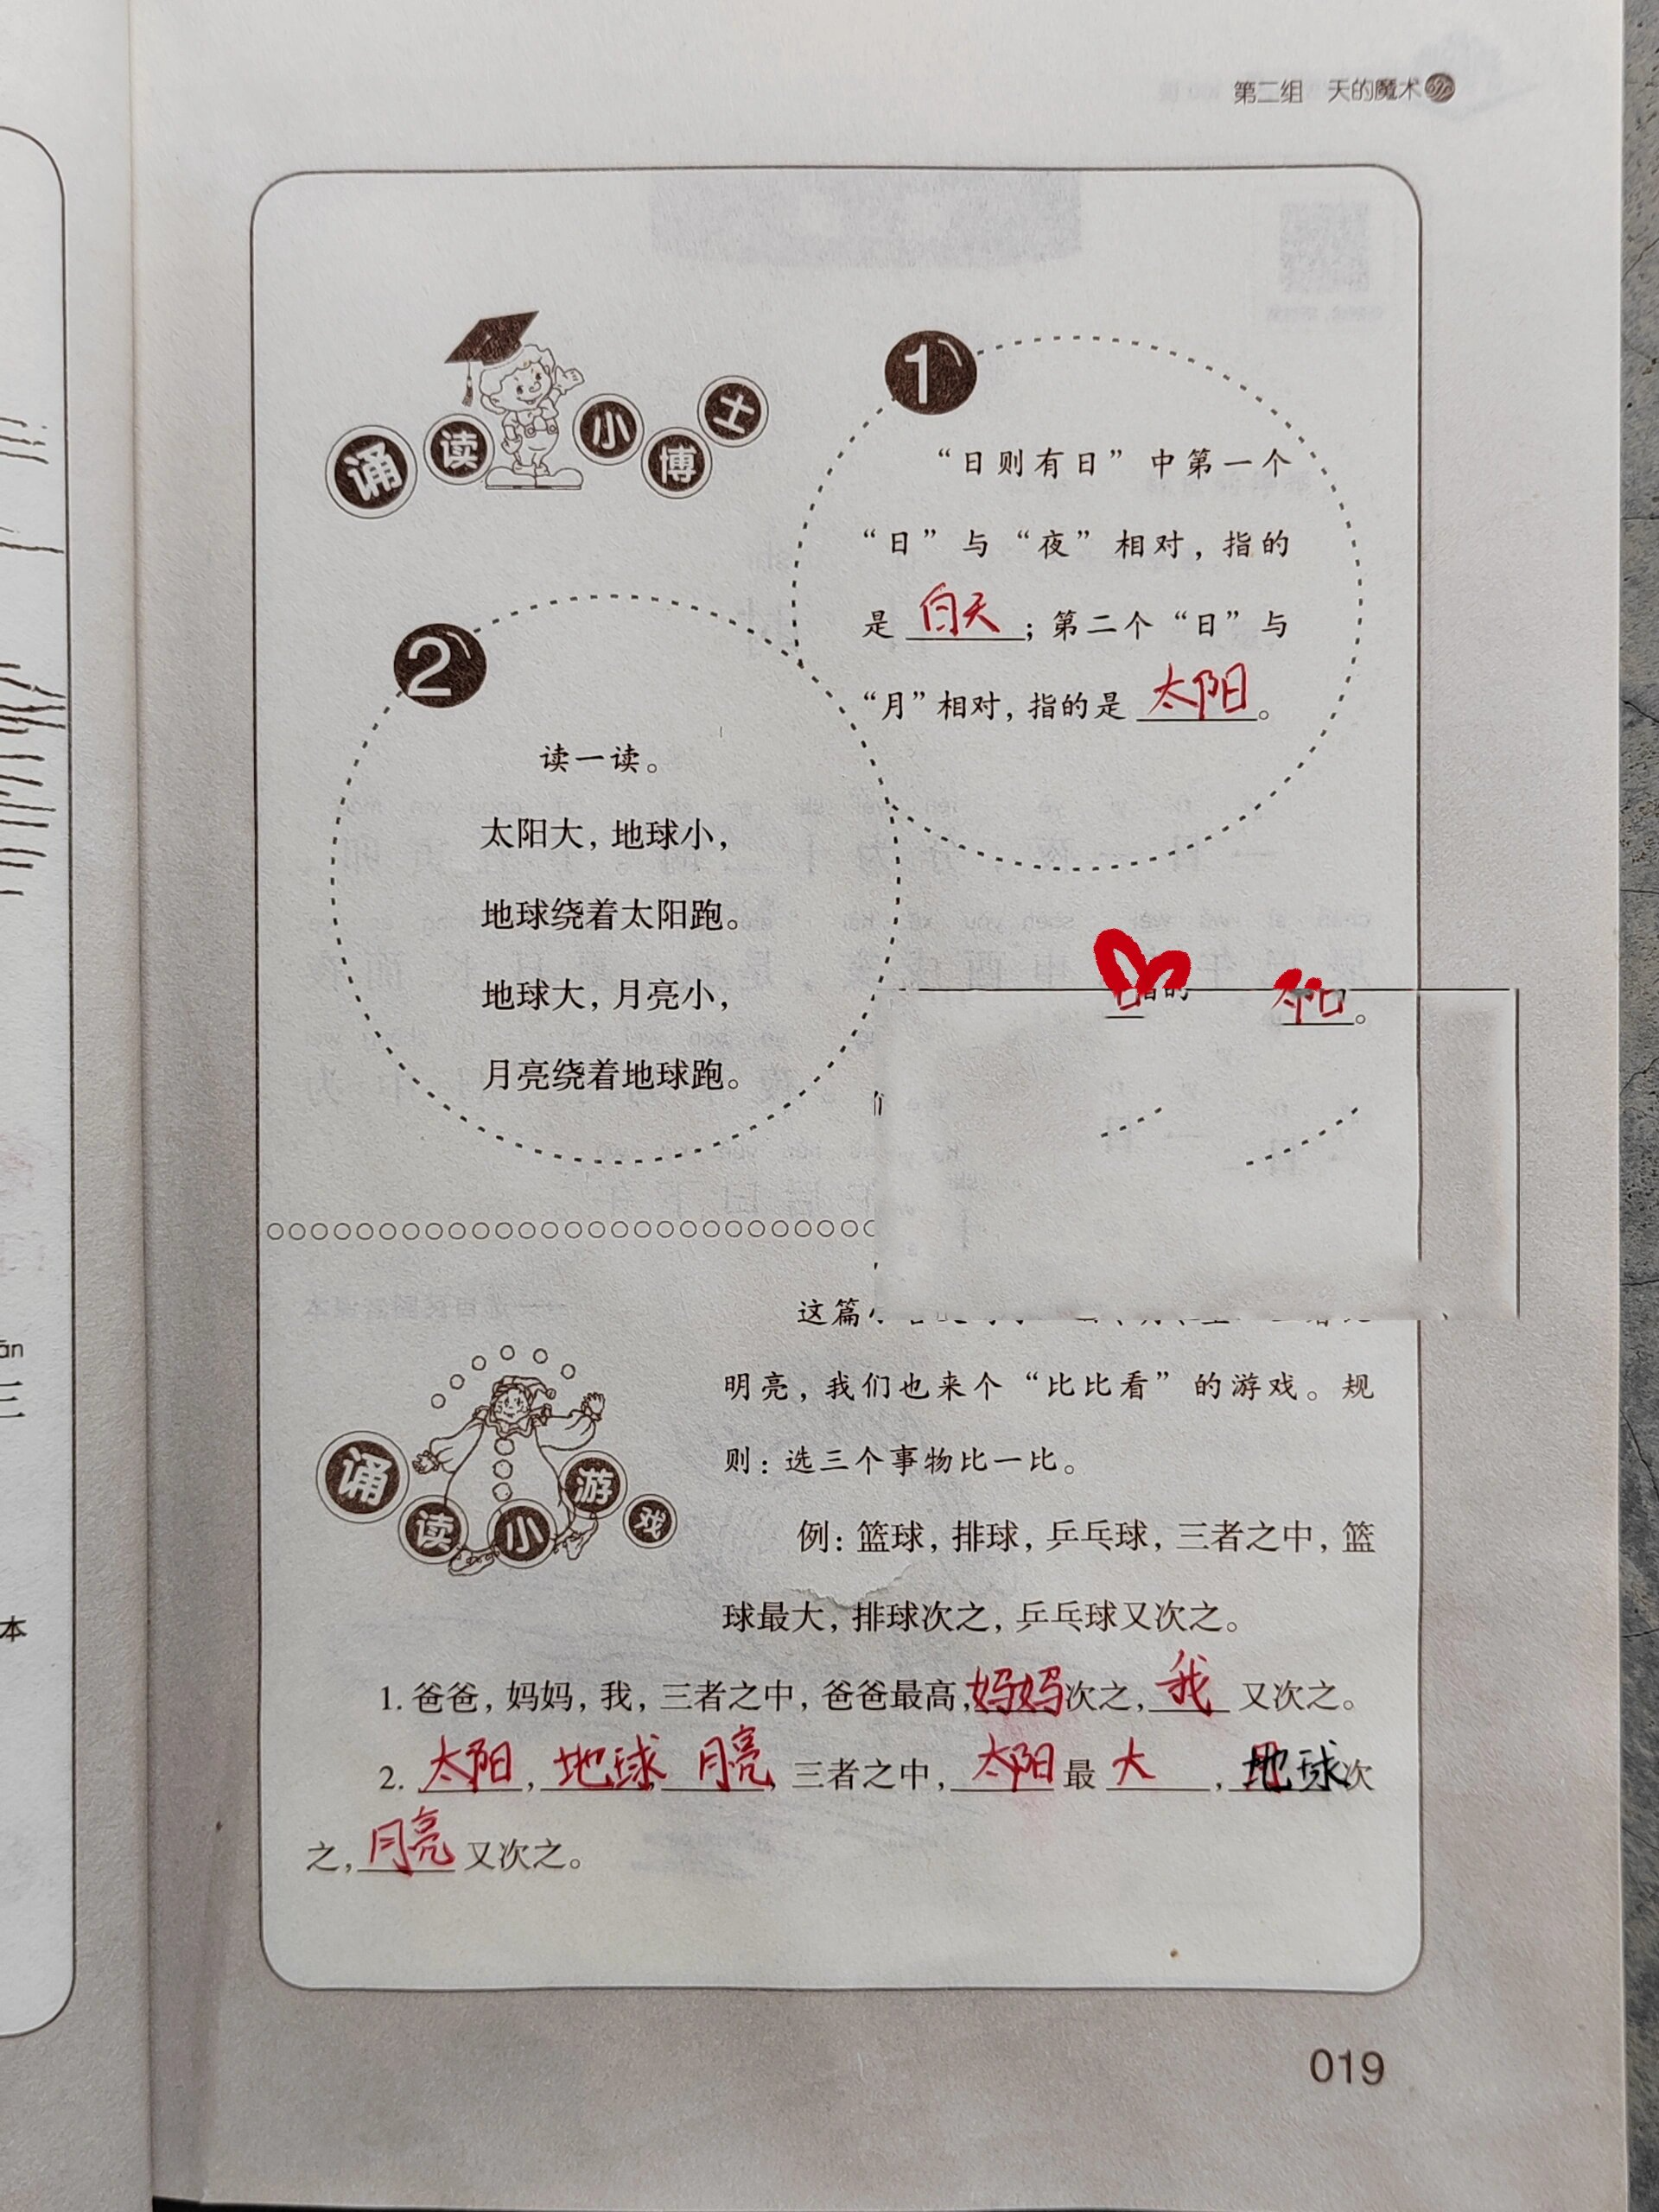 第二组 天的魔术
诵读小博士
1
“日则有日”中第一个
“日”与“夜”相对，指的
是白天；第二个“日”与
“月”相对，指的是太阳。
2
读一读。
太阳大，地球小，
地球绕着太阳跑。
地球大，月亮小，
月亮绕着地球跑。
诵读小游戏
这篇
明亮，我们也来个“比比看”的游戏。规
则：选三个事物比一比。
例：篮球，排球，乒乓球，三者之中，篮
球最大，排球次之，乒乓球又次之。
1. 爸爸，妈妈，我，三者之中，爸爸最高，妈妈次之，我又次之。
2. 太阳，地球，月亮，三者之中，太阳最大，地球次
之，月亮又次之。
019
本